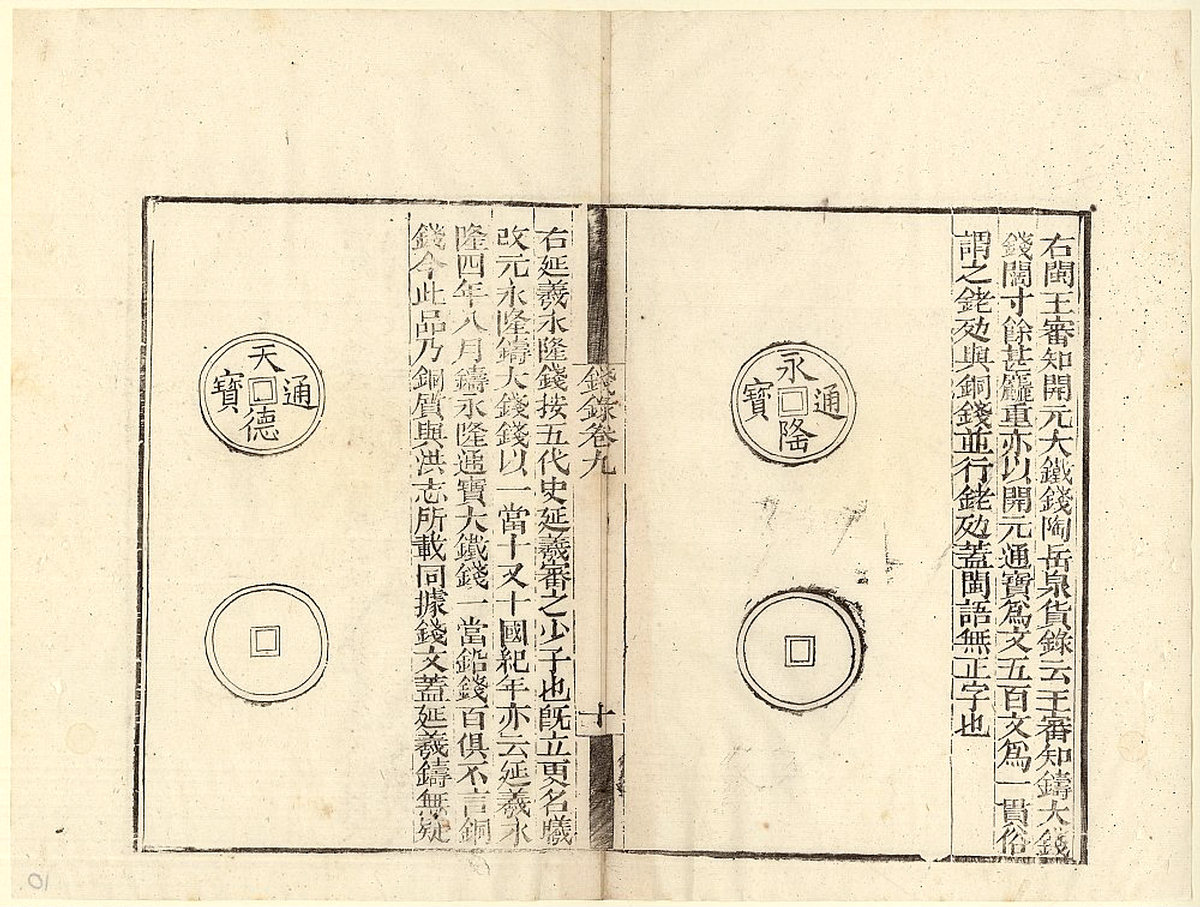 右閩王審知開元大鐵錢陶岳泉貨錄云王審知鑄大錢
錢闊寸餘甚麤重亦以開元通寶爲文五百文爲一貫俗
謂之銠𠛮與銅錢並行銠𠛮蓋閩語無正字也
永隆通寶
錢錄卷九
十
右延羲永隆錢按五代史延羲審之少子也旣立更名曦
改元永隆鑄大錢錢以一當十又十國紀年亦云延羲永
隆四年八月鑄永隆通寶大鐵錢一當鉛錢百俱不言銅
錢今此品乃銅質與洪志所載同據錢文蓋延羲鑄無疑
天德通寶
01